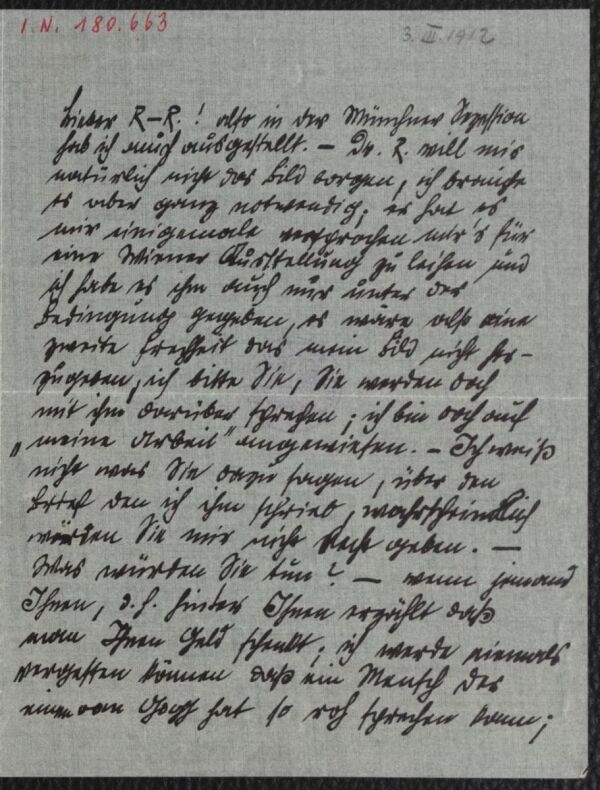 I.N. 180.663
3. III. 1912
Lieber R–R.! also in der Münchner Sezession
hab ich auch ausgestellt. – Dr. R. will mir
natürlich nicht das Bild borgen, ich brauche
es aber ganz notwendig; er hat es
mir einigemale versprochen mir's für
eine Wiener Ausstellung zu leihen und
ich habe es ihm auch nur unter der
Bedingung gegeben, es wäre also eine
zweite Frechheit das mein Bild nicht her-
zugeben, ich bitte Sie, Sie werden doch
mit ihm darüber sprechen; ich bin doch auf
„meine Arbeit" angewiesen. – Ich weiß
nicht was Sie dazu sagen, über den
Brief den ich ihm schrieb, wahrscheinlich
würden Sie mir nicht Recht geben. –
Was würden Sie tun? – wenn jemand
Ihnen, d.h. hinter Ihnen erzählt daß
man Ihnen Geld schenkt; ich werde niemals
vergessen können daß ein Mensch der
einen van Gogh hat so roh sprechen kann;